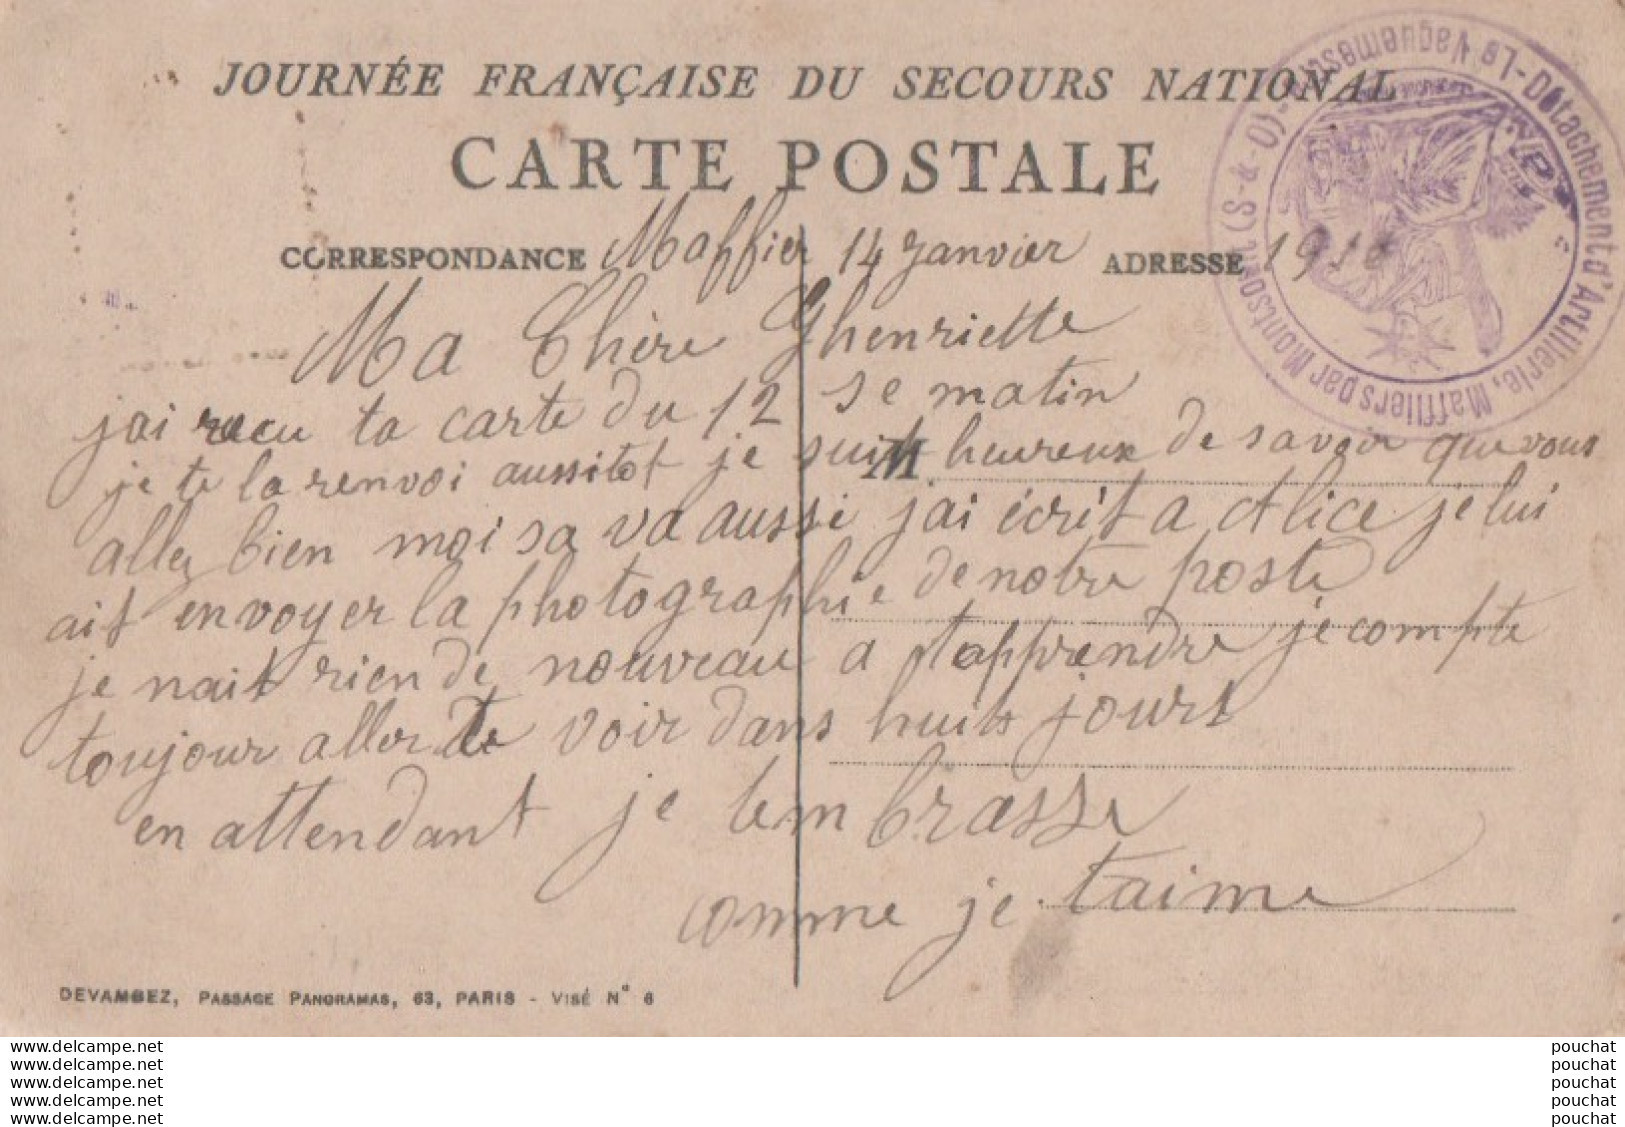 JOURNÉE FRANÇAISE DU SECOURS NATIONAL
CARTE POSTALE
CORRESPONDANCE
ADRESSE
Maffier 14 Janvier 1916
Ma Chère Ghenriette
jai recu ta carte du 12 se matin
je te la renvoi aussitot je suit heureux de savoir que vous
M.
allez bien moi sa va aussi jai écrit a Alice je lui
ait envoyer la photographie de notre poste
je nait rien de nouveau a tapprendre je compte
toujour aller te voir dans huits jourt
en attendant je tembrasse
comme je taime
Détachement d'Artillerie, Maffliers par Montsoult (S-&-O) - Le Vaguemestre -
DEVAMBEZ, PASSAGE PANORAMAS, 63, PARIS - VISÉ N° 6
www.delcampe.net pouchat
www.delcampe.net pouchat
www.delcampe.net pouchat
www.delcampe.net pouchat
www.delcampe.net pouchat